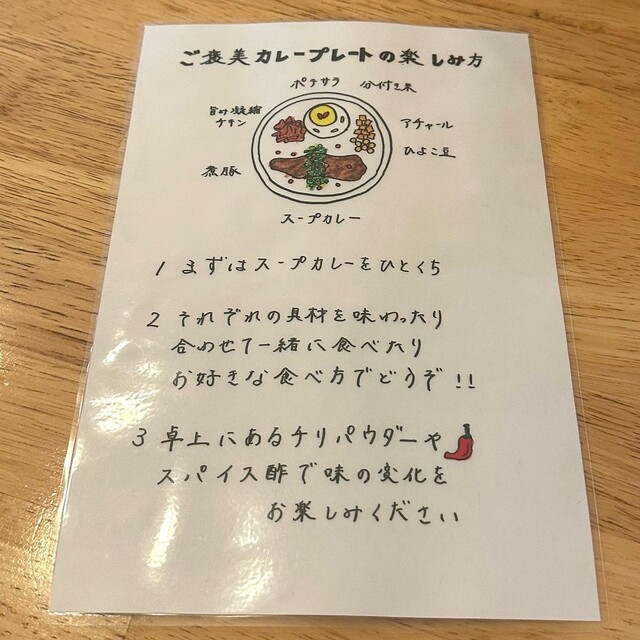 ご褒美カレープレートの楽しみ方
ポテサラ 分付き米
旨み凝縮
チキン
アチャール
ひよこ豆
煮豚
スープカレー
1 まずはスープカレーをひとくち
2 それぞれの具材を味わったり
合わせて一緒に食べたり
お好きな食べ方でどうぞ!!
3 卓上にあるチリパウダーや
スパイス酢で味の変化を
お楽しみください